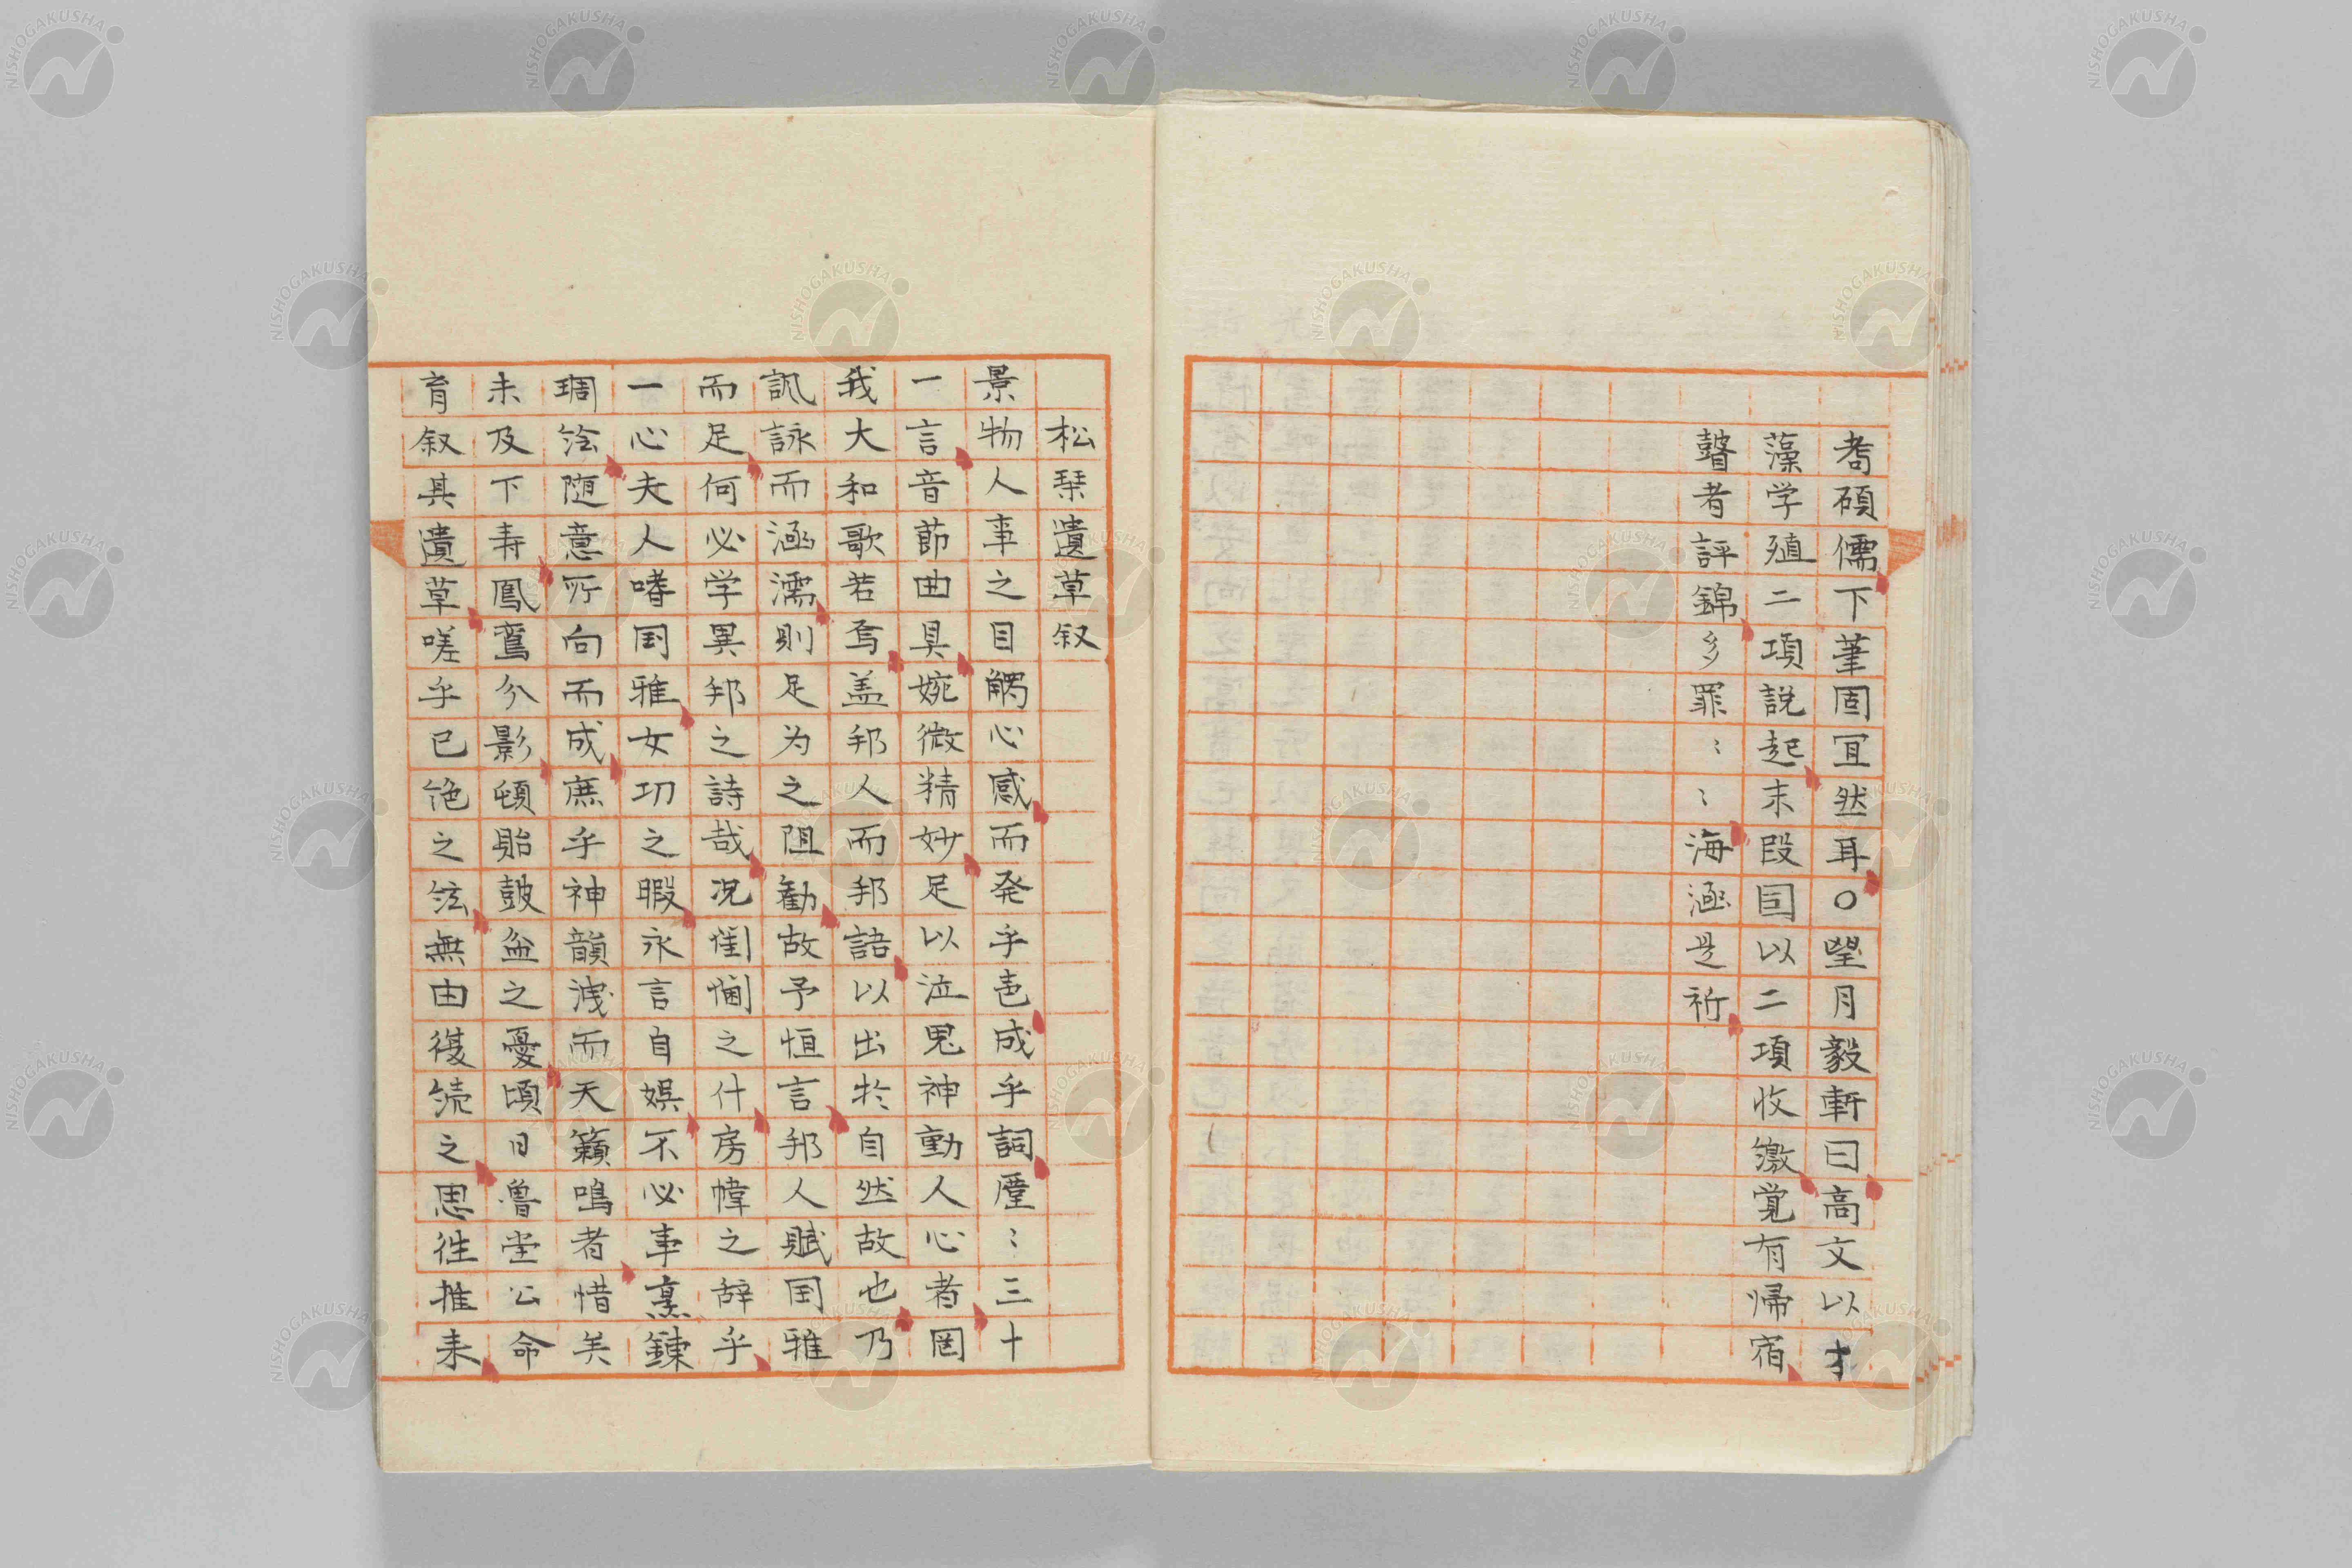 耆碩儒下筆固宜然耳○望月毅軒曰高文以才
藻学殖二項説起末段囙以二項收繳覚有帰宿
瞽者評錦多罪〻〻海涵是祈
松琹遺草叙
景物人事之目觸心感而発乎色成乎詞㕓〻三十
一言音節曲具婉微精妙足以泣鬼神動人心者罔
我大和歌若焉盖邦人而邦語以出於自然故也乃
諷詠而涵濡則足为之阻勧故予恒言邦人賦国雅
而足何必学異邦之詩哉况閨閫之什房幃之辞乎
一心夫人嗜国雅女功之暇永言自娯不必事烹錬
琱絵随意所向而成庶乎神韻洩而天籟鳴者惜矣
未及下寿鳳鸞分影頓貽鼓盆之憂頃日魯堂公命
育叙其遺草嗟乎已絶之絃無由復続之思徃推来